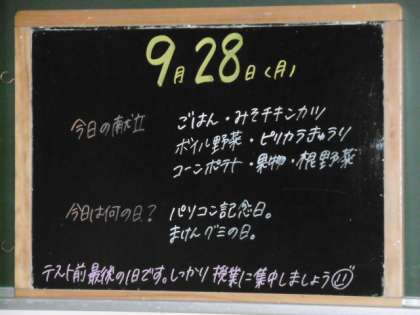 9月28日(月)
今日の献立
ごはん・みそチキンカツ
ボイル野菜・ピリカラきゅうり
コーンポテト・果物・棍野菜
今日は何の日？
パソコン記念日。
まけんグミの日。
テスト前最後の1日です。しっかり授業に集中しましょう